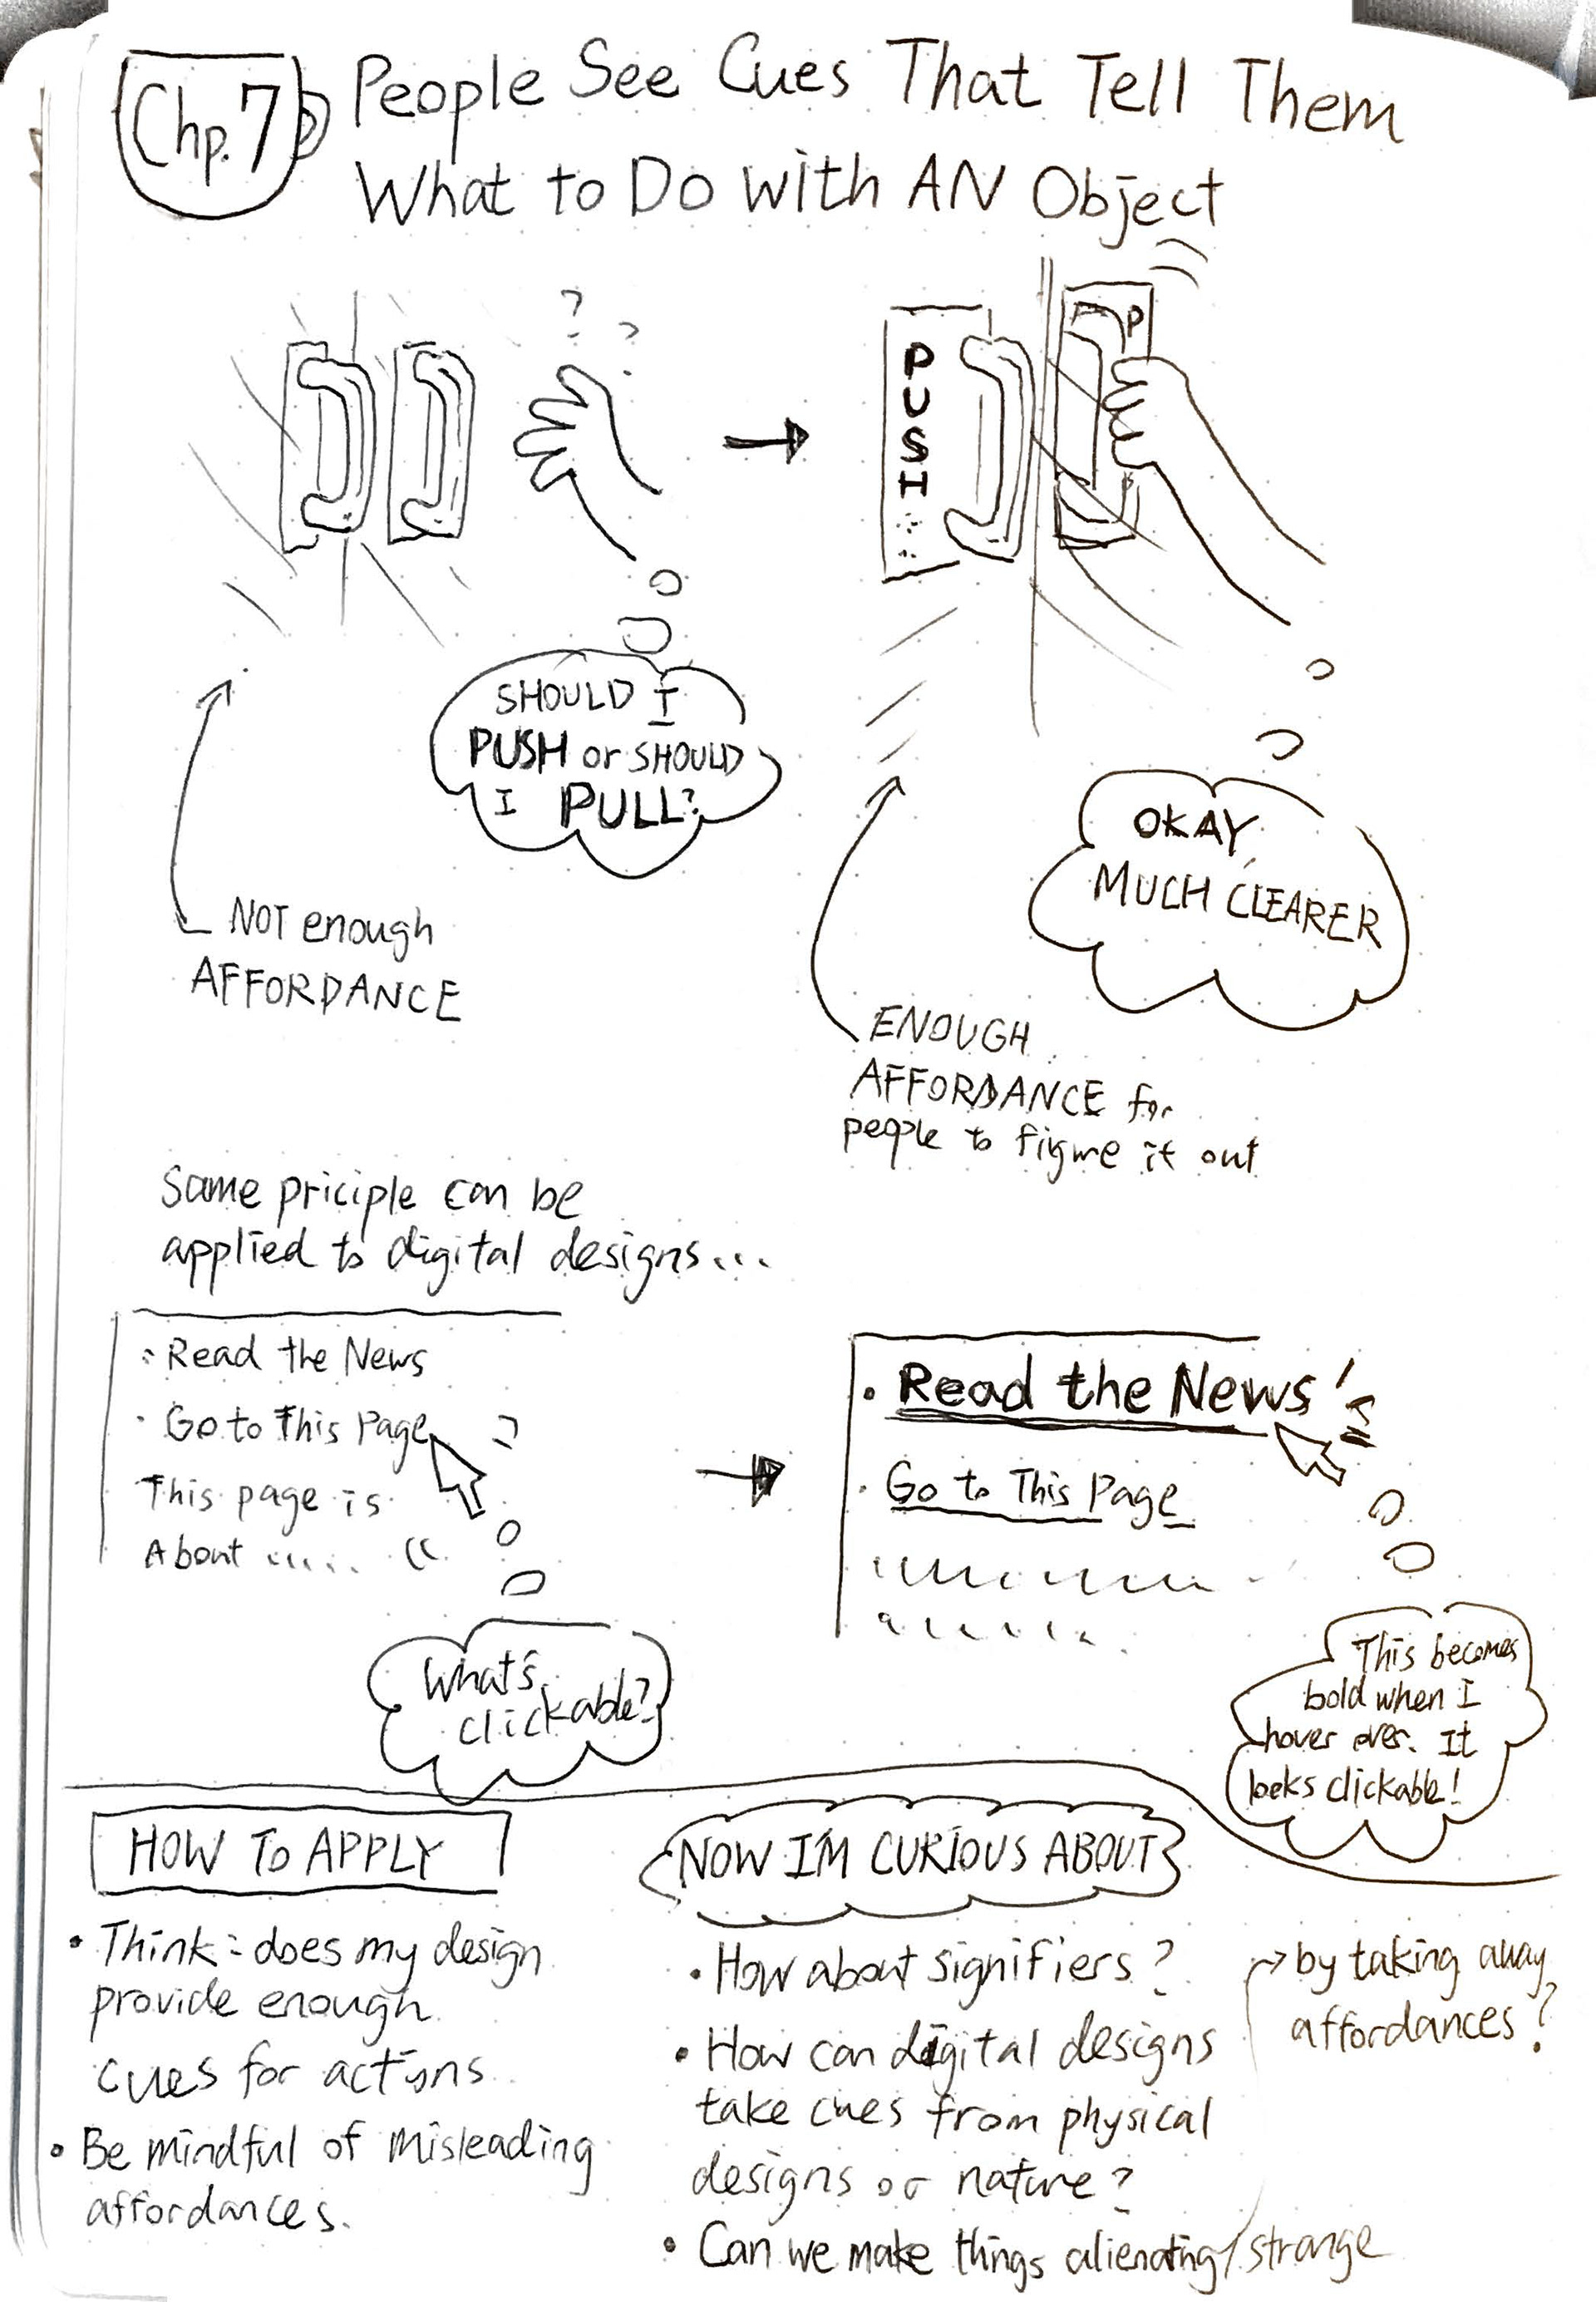 Chp. 7
People See Cues That Tell Them
What to Do with AN Object
? ?
PUSH
P
SHOULD I
PUSH or SHOULD
I PULL?
OKAY,
MUCH CLEARER
NOT enough
AFFORDANCE
ENOUGH
AFFORDANCE for
people to figure it out
Same priciple can be
applied to digital designs...
· Read the News
· Go to This Page ?
This page is
About .....
What's
clickable?
· Read the News
· Go to This Page
This becomes
bold when I
hover over. It
looks clickable!
HOW TO APPLY
• Think: does my design
provide enough
cues for actions
• Be mindful of misleading
affordances.
NOW I'M CURIOUS ABOUT
• How about signifiers?
• How can digital designs
take cues from physical
designs or nature?
• Can we make things alienating/strange
→ by taking away
affordances?